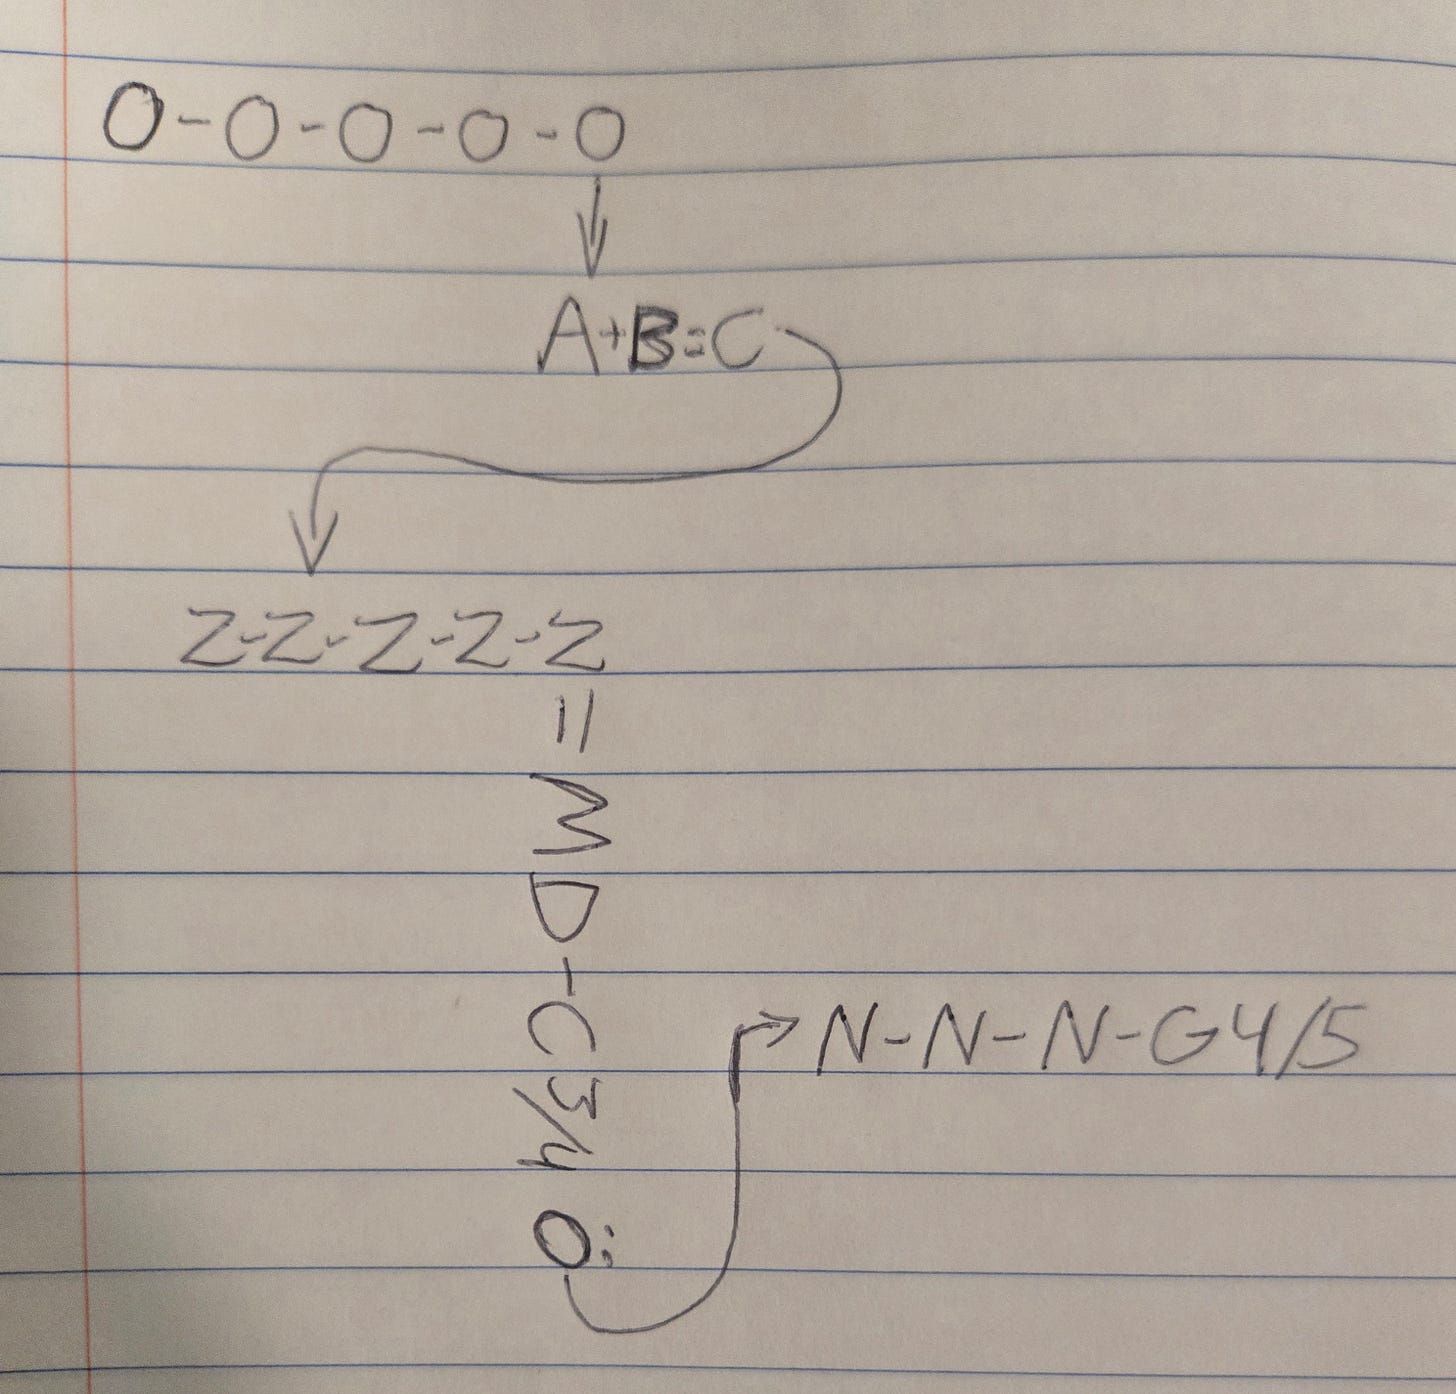 O-O-O-O-O
A+B=C
Z-Z-Z-Z-Z
=MD-C3/4Ö
N-N-N-G4/5